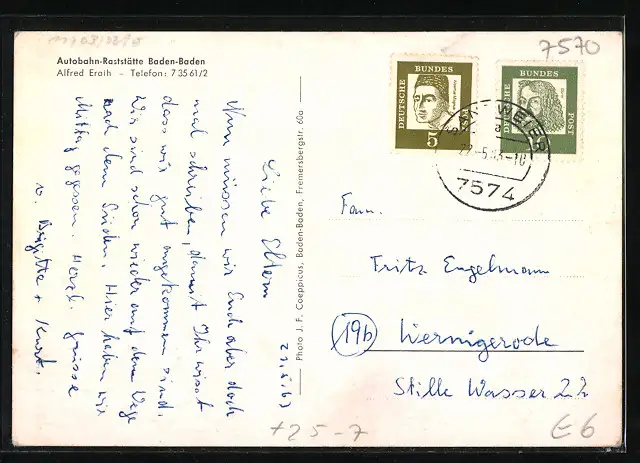 7570
Autobahn-Raststätte Baden-Baden
Alfred Eraih - Telefon: 7 35 61/2
DEUTSCHE BUNDESPOST
5
DEUTSCHE BUNDESPOST
WEIER
a
22.-5.63-10
7574
23.5.63
Liebe Eltern
Nun müssen wir Euch aber doch
mal schreiben, damit Ihr wisst
dass wir gut angekommen sind.
Wir sind schon wieder auf dem Wege
nach dem Süden. Hier haben wir
Mittag gegessen. Herzl. Grüsse
v. Brigitte + Kurt.
Photo J. F. Coeppicus, Baden-Baden, Fremersbergstr. 60a
Fam.
Fritz Engelmann
(19b) Wernigerode
Stille Wasser 22
+25-7
E6